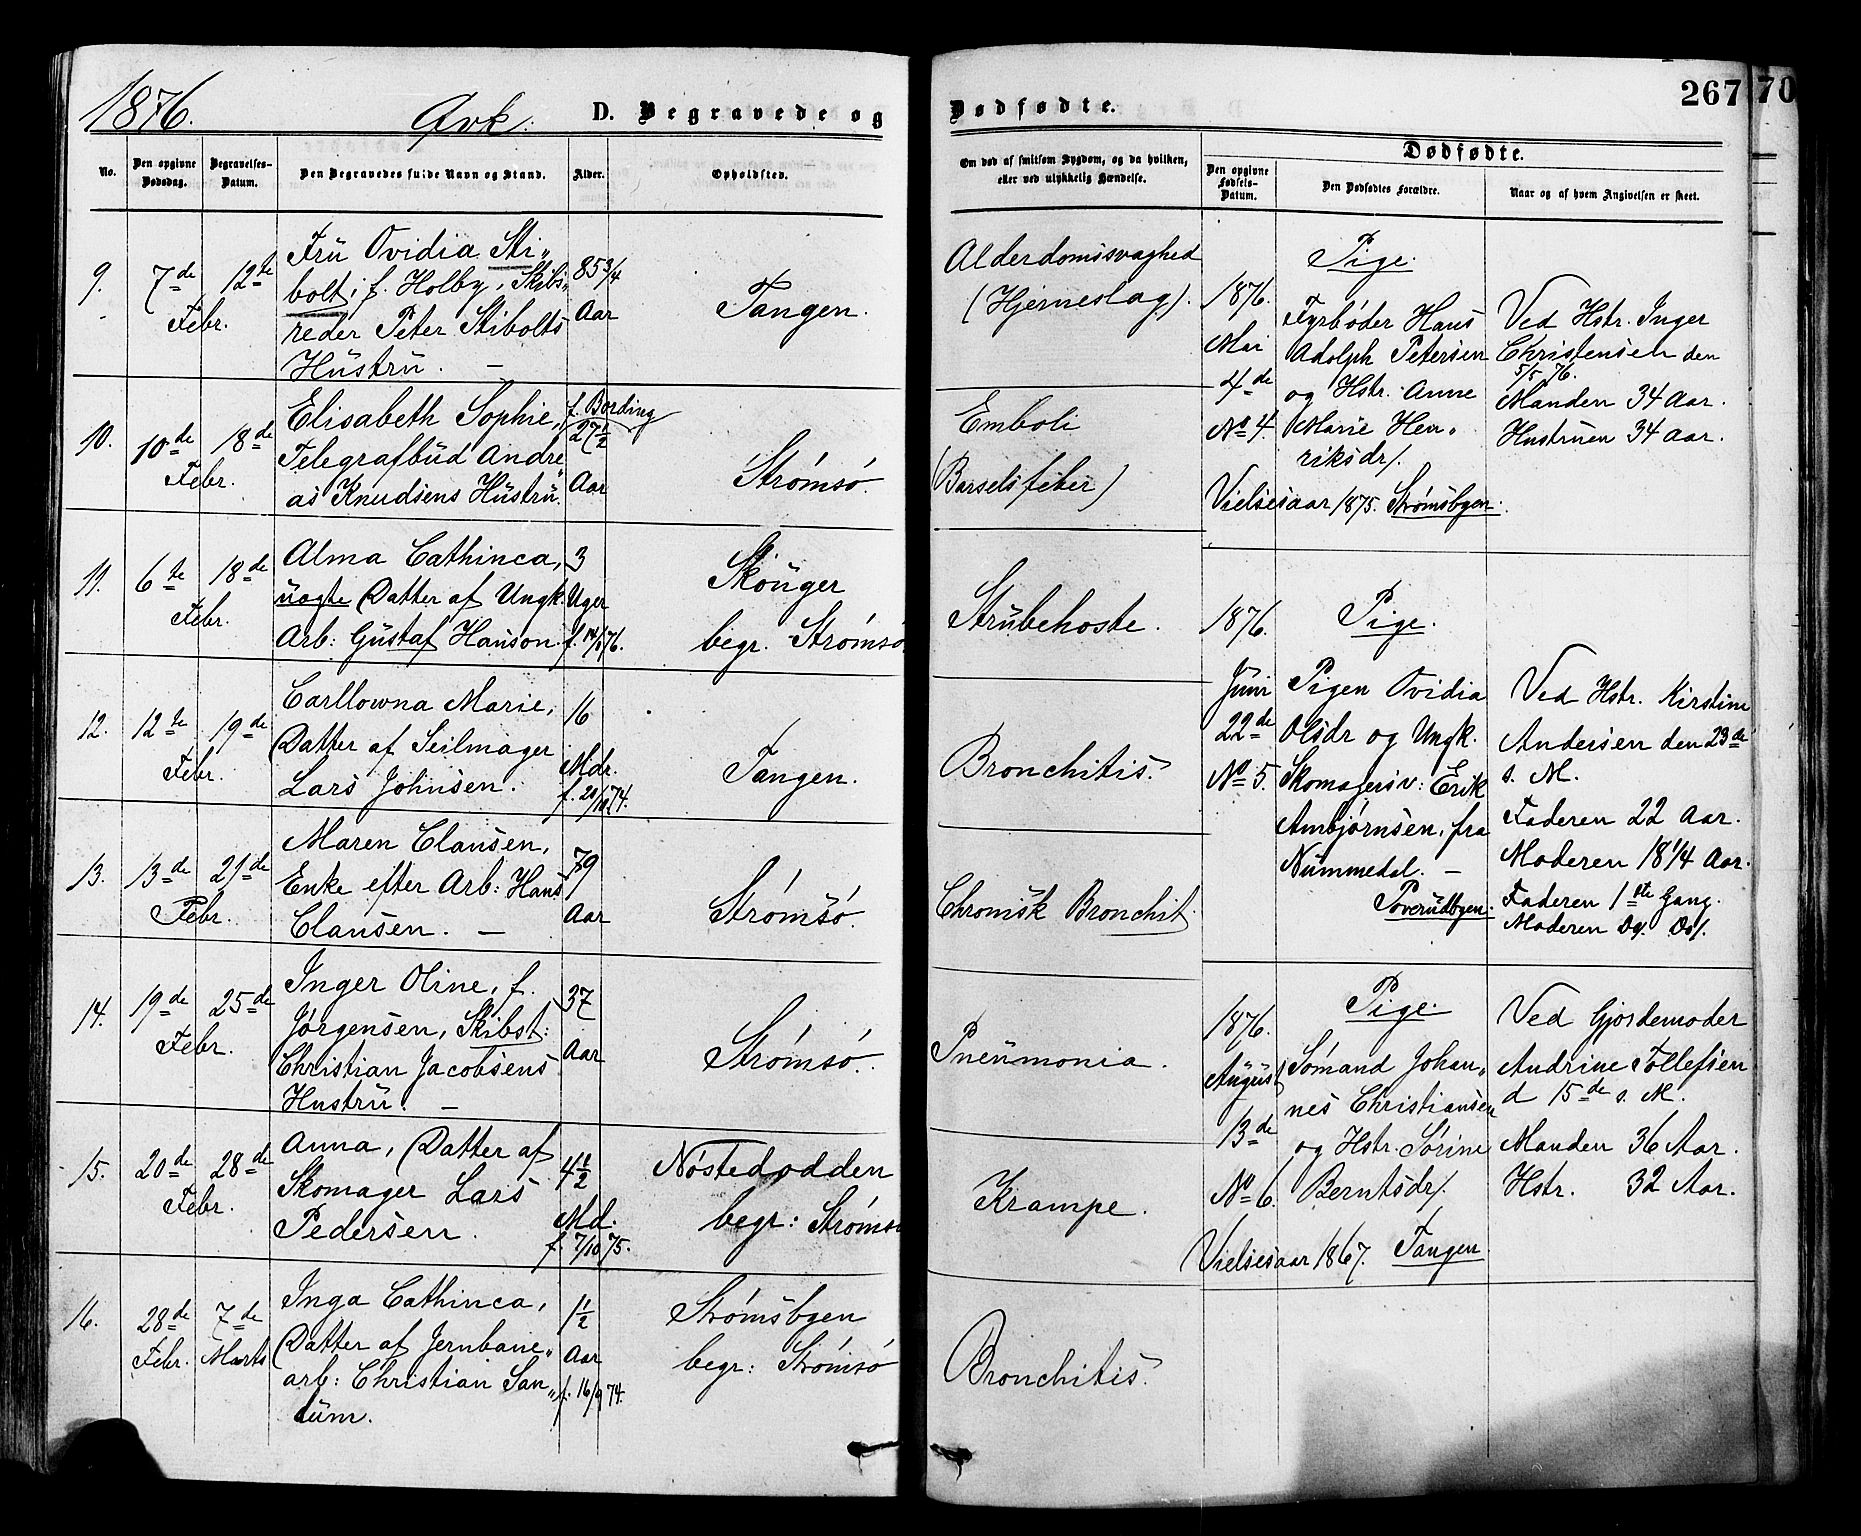 1876.
Qvk:
D. Begravede og
No.
Den opgivne
Dødsdag.
Begravelses-
Datum.
Den Begravedes fulde Navn og Stand.
Alder.
Opholdsted.
9.
7de
12te
Febr.
Frü Ovidia Sti„
bolt, f. Holby, Skibs„
reder Peter Stibolts
Hüstrü. —
85 3/4
Aar
Tangen.
10.
10de
18de
Febr.
Elisabeth Sophie,
f. Bording
Telegrafbüd Andre„
as Knudsens Hüstrü.
27 1/2
Aar
Strömsö.
11.
6te
18de
Febr.
Alma Cathinca,
üægte Datter af Ungk.
Arb: Güstaf Hanson.
3
Uger
f. 14/1 76.
Sköüger
begr. Strömsö
12.
12te
19de
Febr.
Carllowna Marie,
Datter af Seilmager
Lars Johnsen.
16
Mdr.
f. 20/10 74.
Tangen.
13.
13de
21de
Febr.
Maren Clausen,
Enke efter Arb: Hans
Clausen. —
79
Aar
Strömsö.
14.
19de
25de
Febr.
Inger Oline, f.
Jørgensen, Skibst:
Christian Jacobsens
Hustrü. —
37
Aar
Strömsö.
15.
20de
28de
Febr.
Anna, Datter af
Skomager Lars
Pedersen.
4 1/2
Md.
f. 7/10 75.
Nöstedodden
begr: Strömsö
16.
28de
Febr.
7de
Marts
Inga Cathinca,
Datter af Jernbane„
arb: Christian San„
tüm.
1 1/2
Aar
f. 16/9 74.
Strömsbyen
begr: Strömsö
Dødfødte.
267
70
Om død af smitsom Sygdom, og da hvilken,
eller ved ulykkelig Hændelse.
Dødfødte.
Den opgivne
Fødsels-
Datum.
Den Dødfødtes Forældre.
Naar og af hvem Angivelsen er skeet.
Alderdomssvaghed
(Hjerneslag).
Emboli
(Barselsfeber)
Strübehoste.
Bronchitis.
Chronisk Bronchit.
Pneümonia.
Krampe.
Bronchitis.
1876.
Mai
4de
No 4.
Pige.
Fyrböder Hans
Adolph Petersen
og Hstr. Anne
Marie Hen„
riksdr.
Vielsesaar 1875. Strömsbyen.
Ved Hstr. Inger
Christensen den
5/5 76.
Manden 34 Aar.
Hustruen 34 Aar.
1876.
Jüni
22de
No 5.
Pige.
Pigen Ovidia
Olsdr og Ungk.
Skomagersv: Erik
Ambjörnsen, fra
Nümmedal. —
Poverüdbyen.
Ved Hstr. Kirstine
Andersen den 23de
s. M.
Faderen 22 Aar.
Moderen 18 1/4 Aar.
Faderen 1ste Gang.
Moderen Do. Do.
1876.
August
13de
No 6.
Pige.
Sömand Johan„
nes Christiansen
og Hstr. Sörine
Berntsdr.
Vielsesaar 1867. Tangen.
Ved Gjordemoder
Andrine Tollefsen
d 15de s. M.
Manden 36 Aar.
Hstr. 32 Aar.